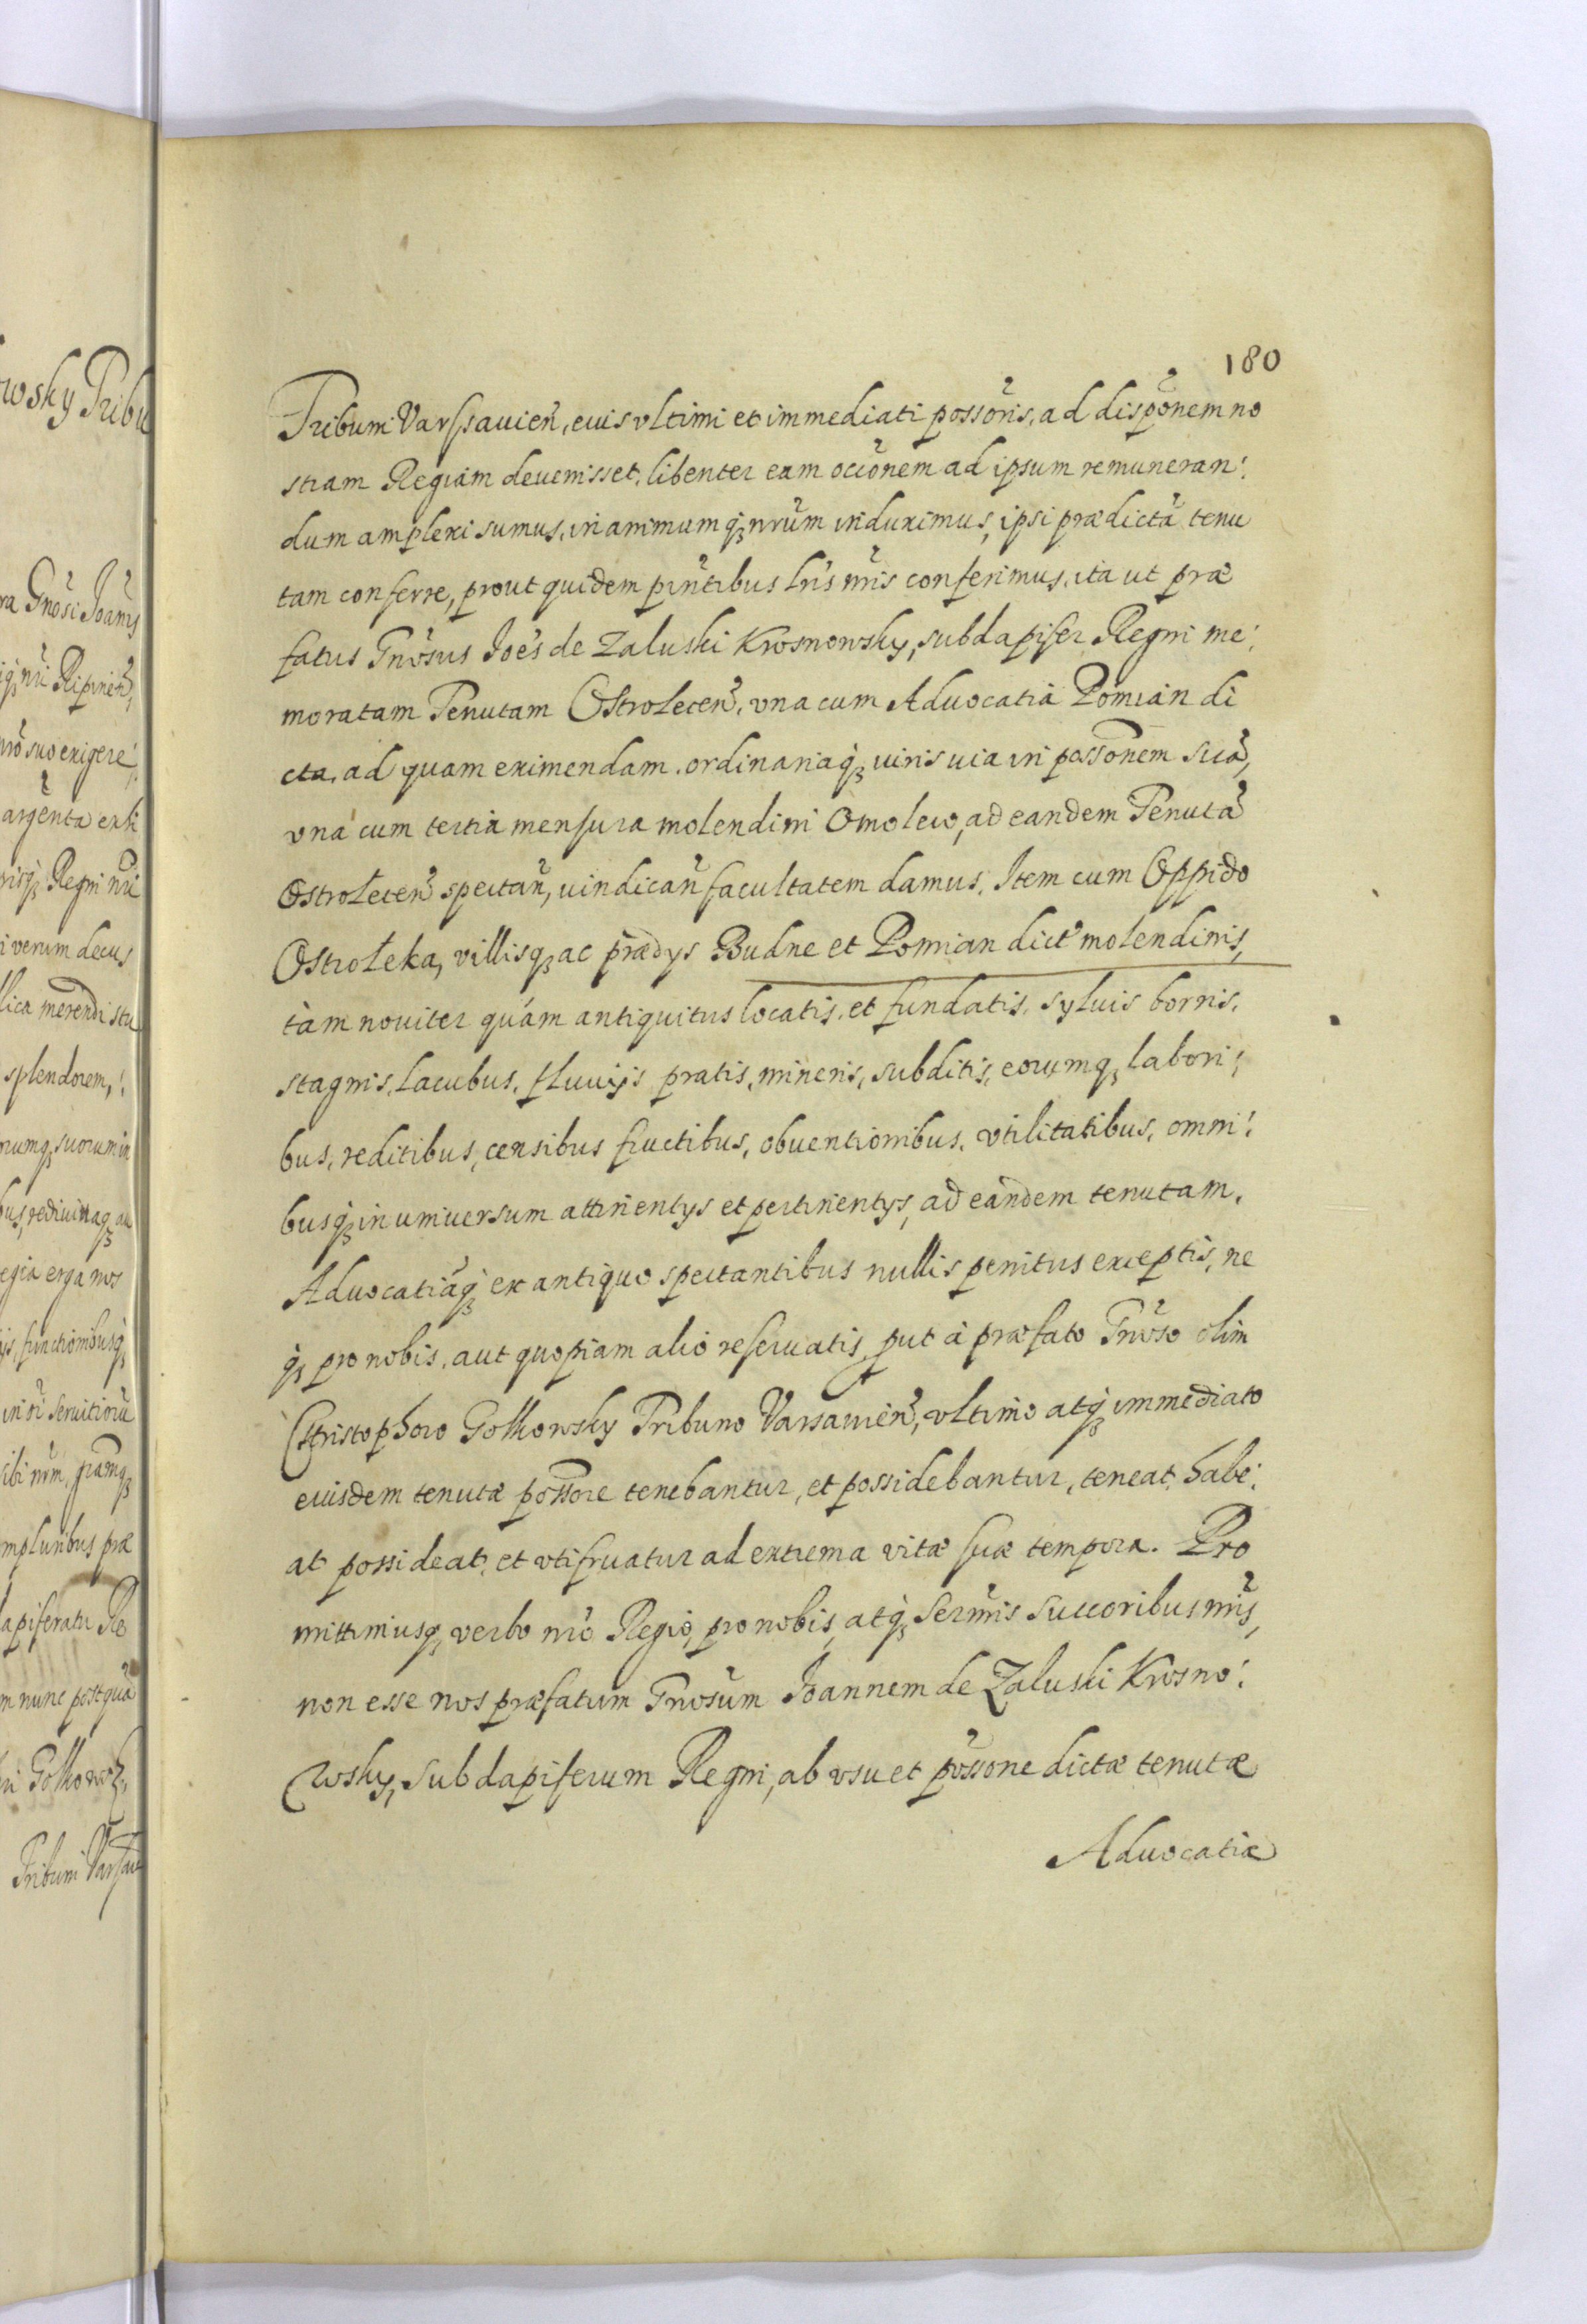 180
Tribuni Varssauien̄, euis vltimi et immediati possōris, ad dispōnem no
stram Regiam deuenisset, libenter eam occōnem ad ipsum remuneran:
dum amplexi sumus, in animumq; nrūm induximus, ipsi prædictā tenu
tam conferre, prout quidem pn̄tibus lr̄is nr̄is conferimus, ita ut præ
fatus Gn̄osus Joēs de Zaluski Krosnowsky, subdapifer Regni me:
moratam Tenutam Ostrolecen̄, vna cum Aduocatia Pomian di
cta, ad quam eximendam, ordinariaq; iuris uia in possōnem suā,
vna cum tertia mensura molendini Omolewo, ad eandem Tenutā
Ostrołecen̄ spectan̄, uindican̄ facultatem damus. Item cum Oppido
Ostrołeka, villisq; ac prædys Budne et Pomian dict̄ molendinis,
tàm nouiter quám antiquitus locatis, et fundatis, syluis borris,
stagnis, lacubus, fluuijs pratis, mineris, subditis, eorumq; labori:
bus, reditibus, censibus fructibus, obuentionibus, vtilitatibus, omni:
busq; in uniuersum attinentys et pertinentys, ad eandem tenutam,
Aduocatiāq; ex antiquo spectantibus nullis penitus exceptis, ne
q; pro nobis, aut quopiam alio reseruatis, put à præfato Gn̄oso olim
Christophoro Golkowsky Tribuno Varsauien̄, vltimo atq; immediato
eiusdem tenutæ possōre tenebantur, et possidebantur, teneat, habe:
at possideat, et vtifruatur ad extrema vitæ suæ tempora. Pro
mittimusq; verbo nr̄o Regio, pro nobis, atq; Serm̄is Succoribus nr̄is,
non esse nos præfatum Gn̄osum Joannem de Zaluski Krosno:
wsky, Subdapiferum Regni, ab vsu et possōne dictæ tenutæ
Aduocatiæ